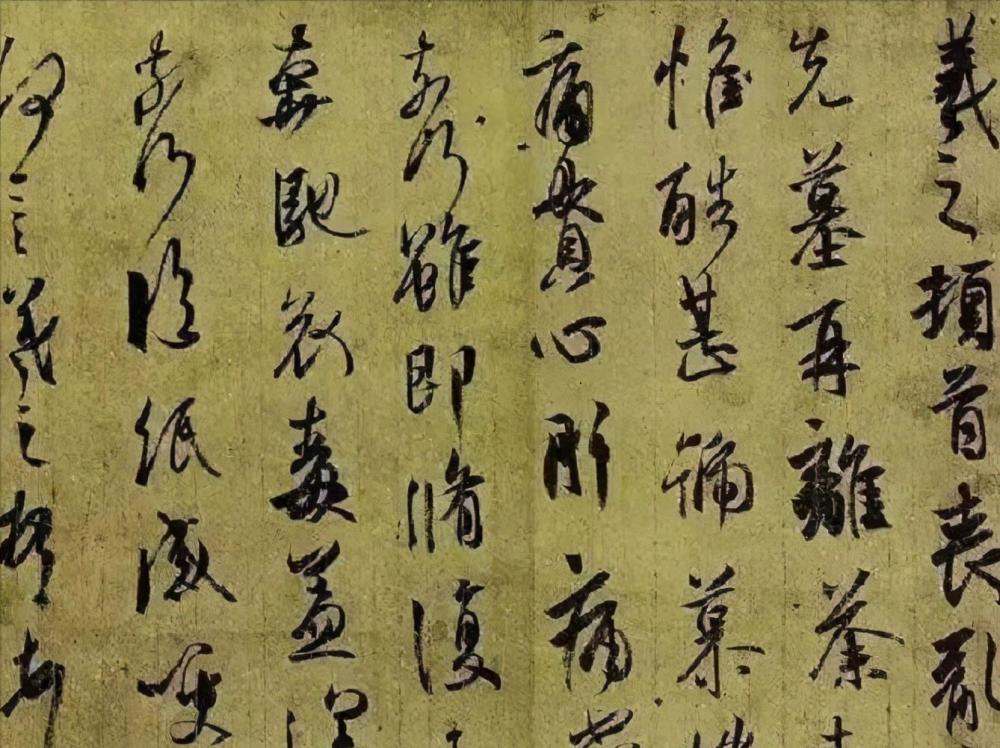 羲之頓首喪亂
先墓再離荼
惟酷甚號慕
痛貫心肝痛
奈何雖即脩復
奔馳哀毒益深
奈何臨紙感哽
何言羲之頓首